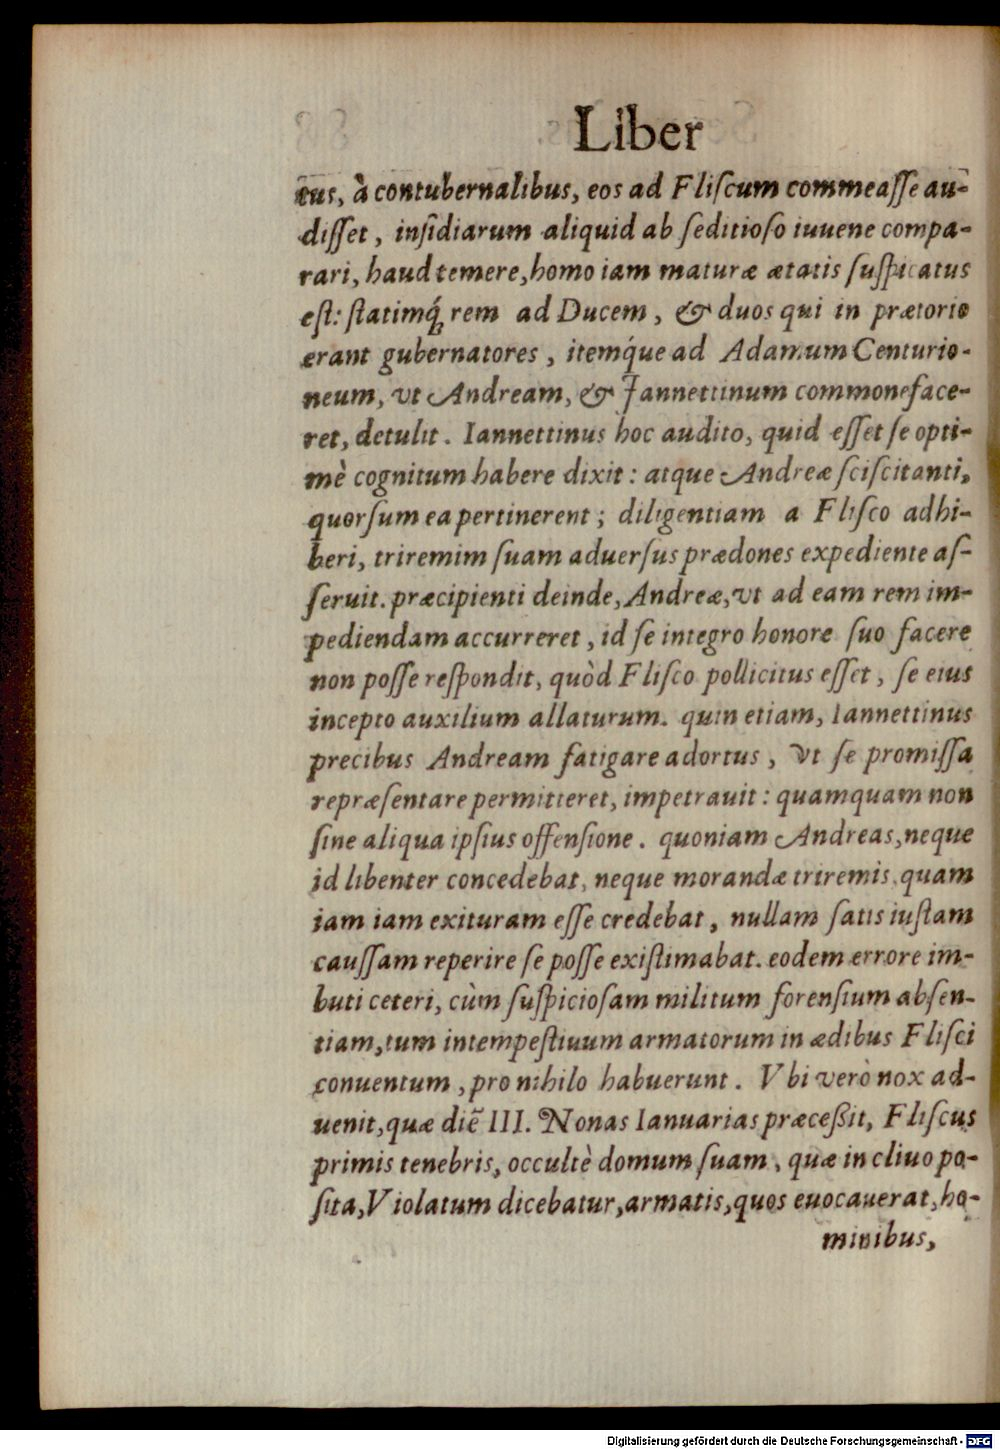 Liber
tus, à contubernalibus, eos ad Fliſcum commeaſſe au-
diſſet, inſidiarum aliquid ab ſeditioſo iuuene compa-
rari, haud temere, homo iam maturæ ætatis ſuſpicatus
eſt: ſtatimq́; rem ad Ducem, & duos qui in prætorio
erant gubernatores, itemq́ue ad Adamum Centurio-
neum, vt Andream, & Iannettinum commoneface-
ret, detulit. Iannettinus hoc audito, quid eſſet ſe opti-
mè cognitum habere dixit: atque Andreæ ſciſcitanti,
quorſum ea pertinerent; diligentiam a Fliſco adhi-
beri, triremim ſuam aduerſus prædones expediente aſ-
ſeruit. præcipienti deinde, Andreæ, vt ad eam rem im-
pediendam accurreret, id ſe integro honore ſuo facere
non poſſe reſpondit, quòd Fliſco pollicitus eſſet, ſe eius
incepto auxilium allaturum. quin etiam, Iannettinus
precibus Andream fatigare adortus, vt ſe promiſſa
repræſentare permitteret, impetrauit: quamquam non
ſine aliqua ipſius offenſione. quoniam Andreas, neque
id libenter concedebat, neque morandæ triremis, quam
iam iam exituram eſſe credebat, nullam ſatis iuſtam
cauſſam reperire ſe poſſe exiſtimabat. eodem errore im-
buti ceteri, cùm ſuſpicioſam militum forenſium abſen-
tiam, tum intempeſtiuum armatorum in ædibus Fliſci
conuentum, pro nihilo habuerunt. Vbi verò nox ad-
uenit, quæ diē III. Nonas Ianuarias præceßit, Fliſcus
primis tenebris, occultè domum ſuam, quæ in cliuo po-
ſita, Violatum dicebatur, armatis, quos euocauerat, ho-
minibus,
Digitalisierung gefördert durch die Deutsche Forschungsgemeinschaft - DFG